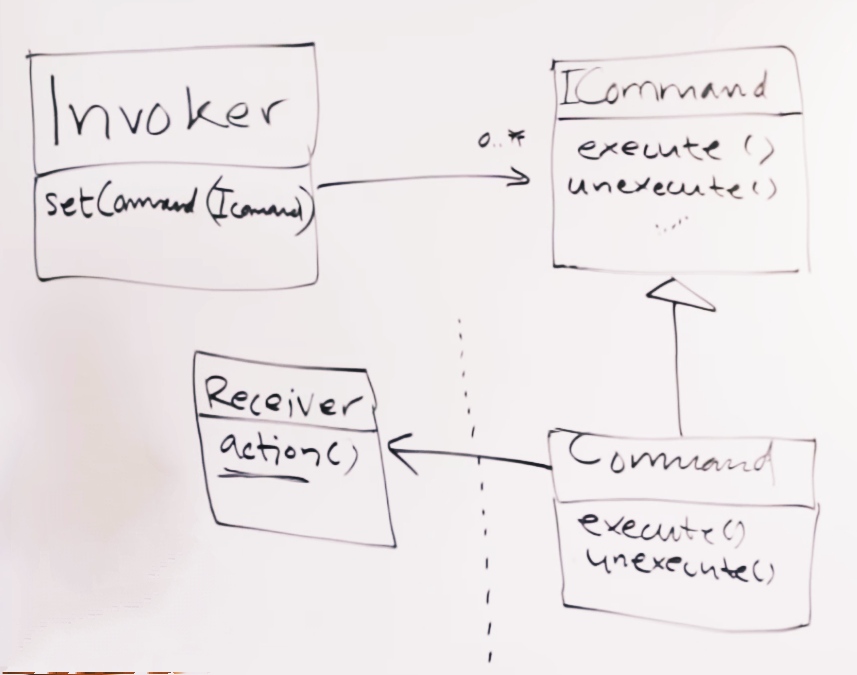 Invoker
setCommand(Icomand)
0..*
ICommand
execute()
unexecute()
Receiver
action()
Command
execute()
unexecute()